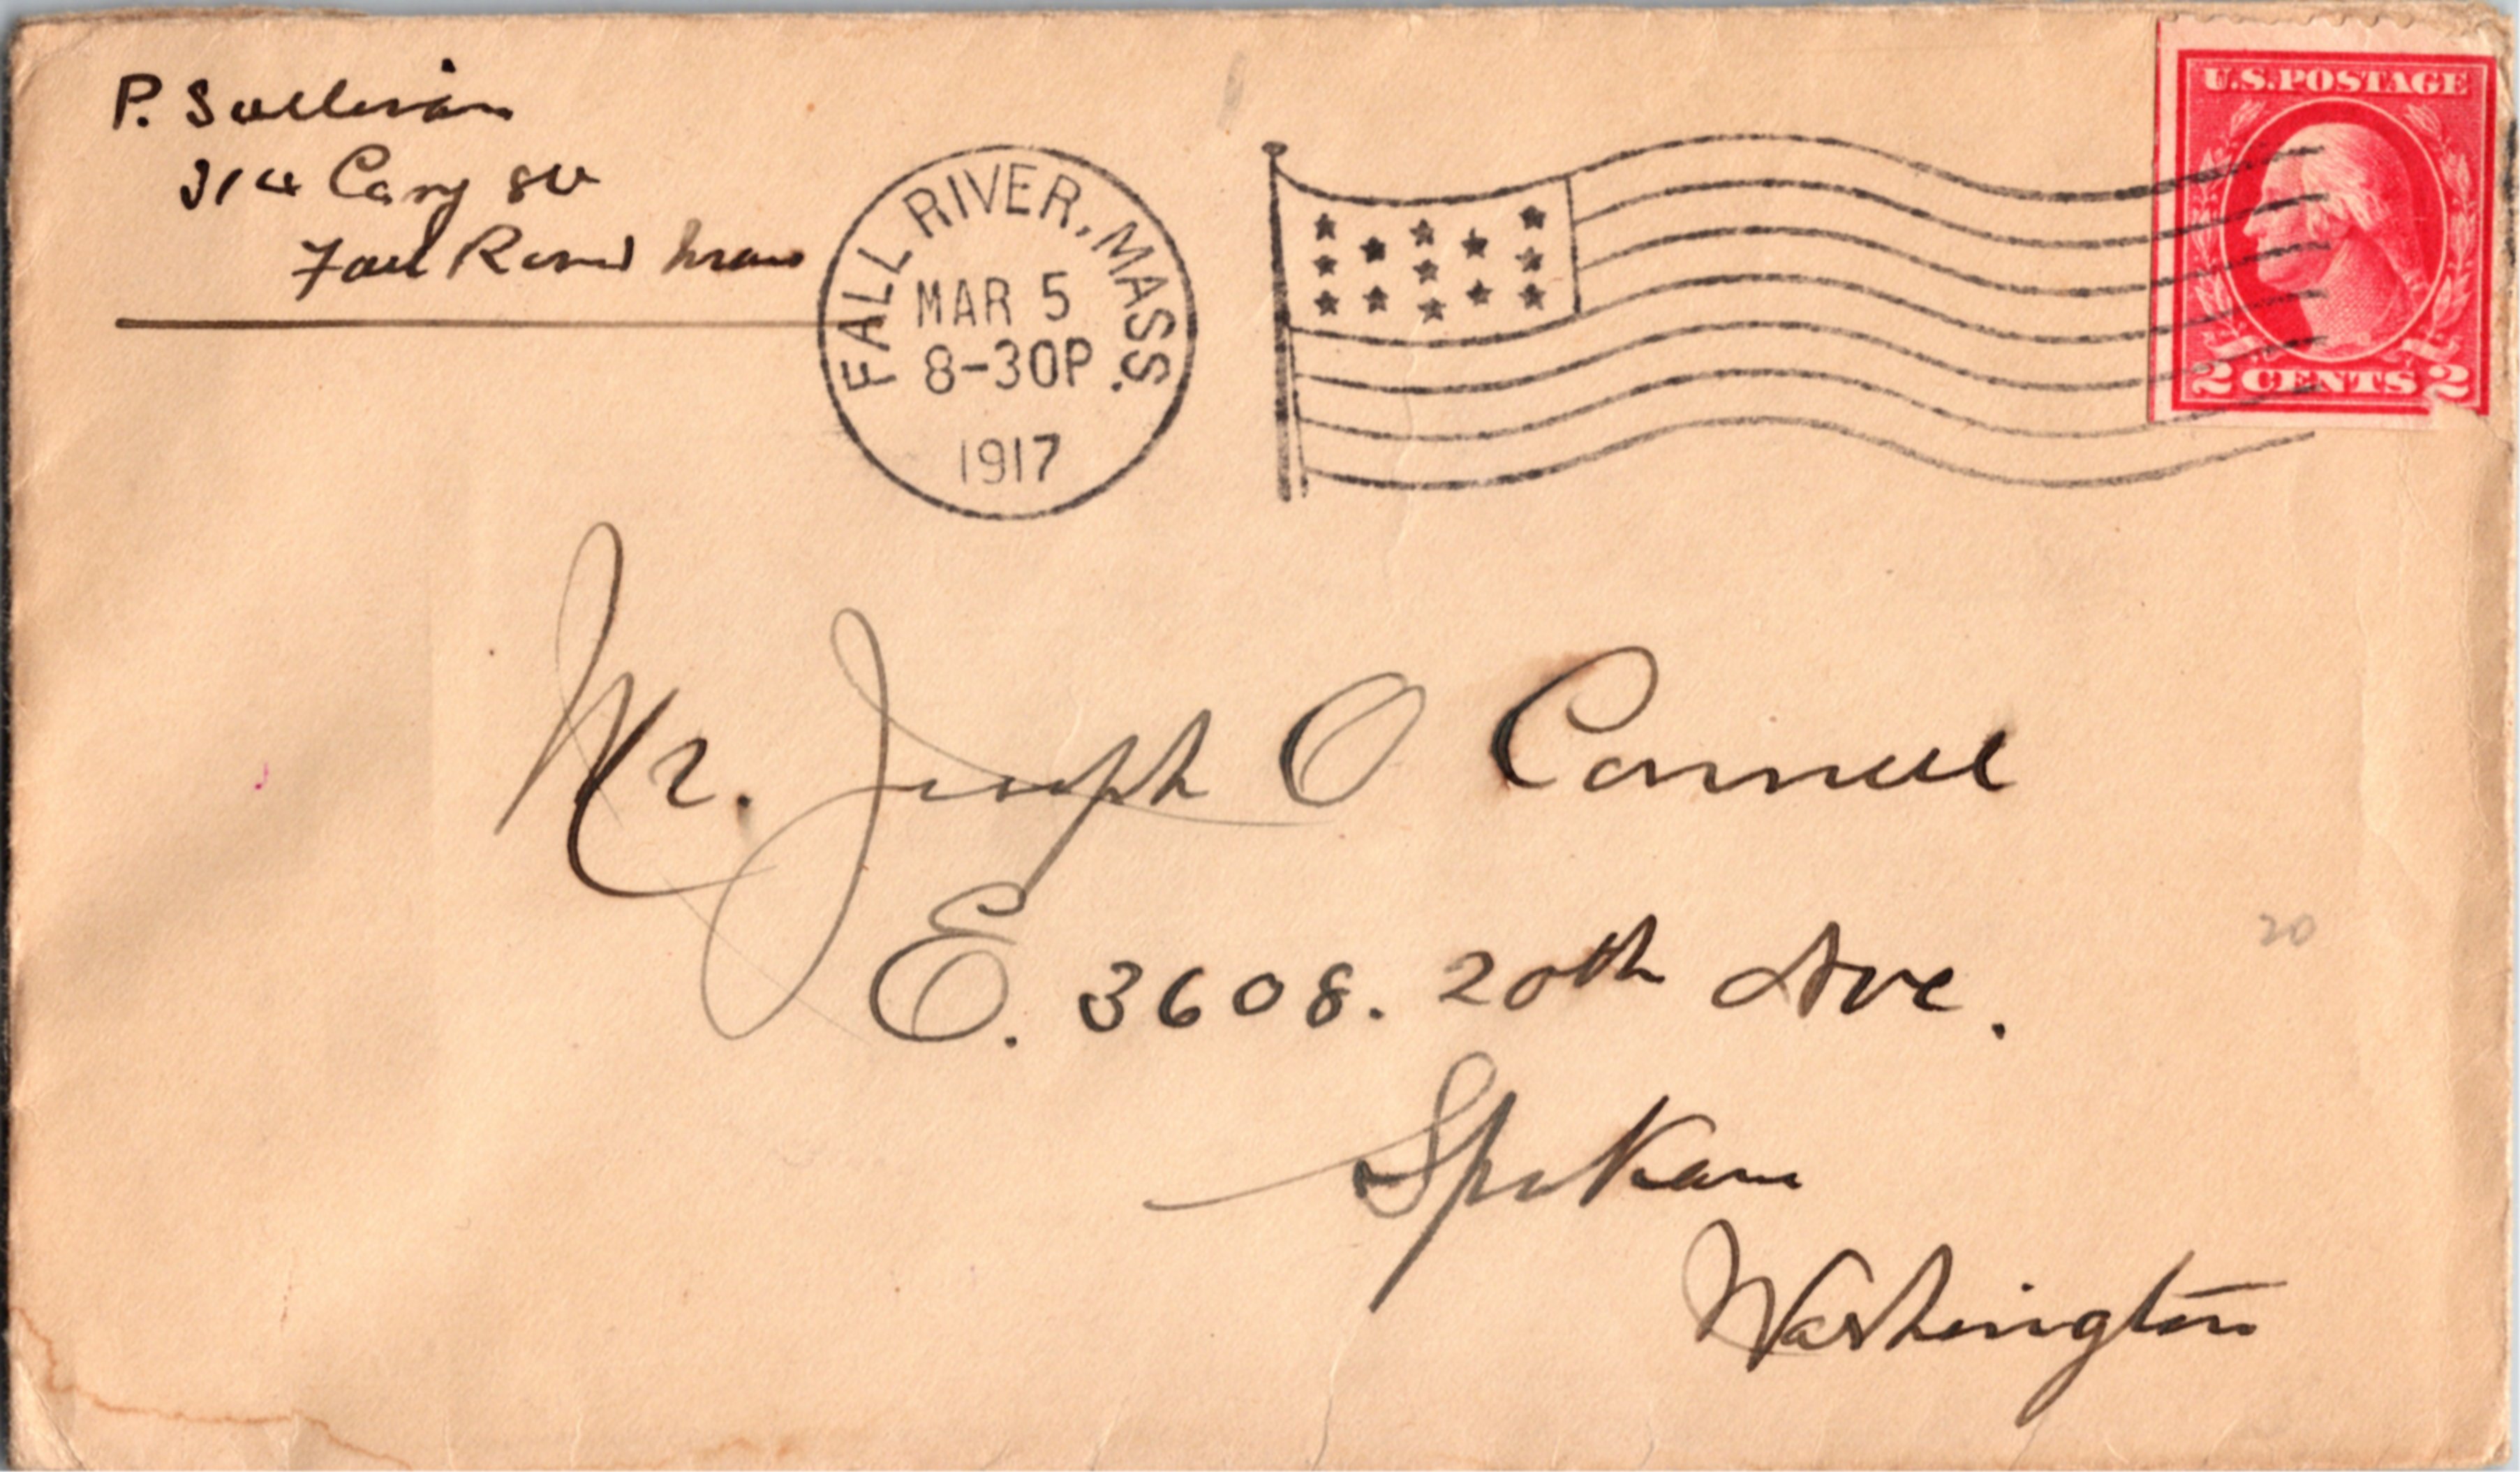 P. Sullivan
314 Cary St
Fall River Mass
FALL RIVER, MASS.
MAR 5
8-30P
1917
U.S. POSTAGE
2 CENTS 2
Mr. Joseph O Connell
E. 3608. 20th Ave.
20
Spokane
Washington